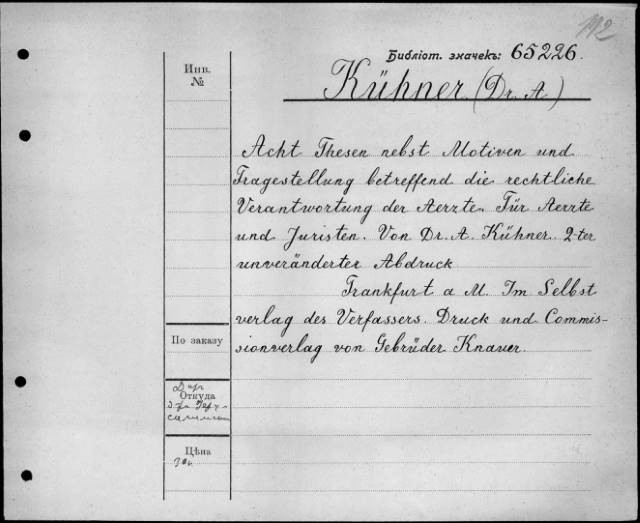 112
Библіот. значекъ: 65226.
Инв.
№
Kühner (Dr. A.)
Acht Thesen nebst Motiven und
Fragestellung betreffend die rechtliche
Verantwortung der Aerzte. Für Aerzte
und Juristen. Von Dr. A. Kühner. 2-ter
unveränderter Abdruck
Frankfurt a M. Im Selbst
verlag des Verfassers. Druck und Commis-
sionverlag von Gebrüder Knauer.
По заказу
Дар
Откуда
Цѣна